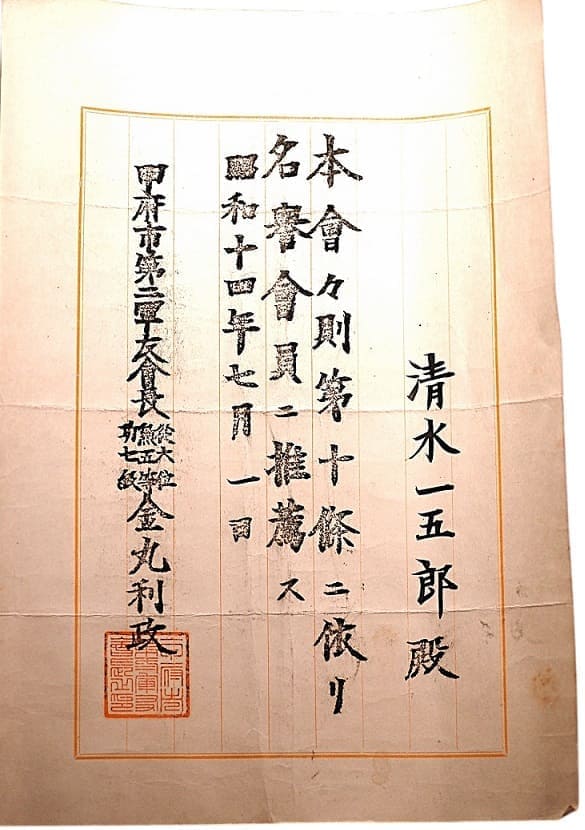 清水一五郎殿
本會々則第十條ニ依リ
名譽會員ニ推薦ス
昭和十四年七月一日
甲府市第二軍友會長 從六位 勲五等 功七級 金丸利政